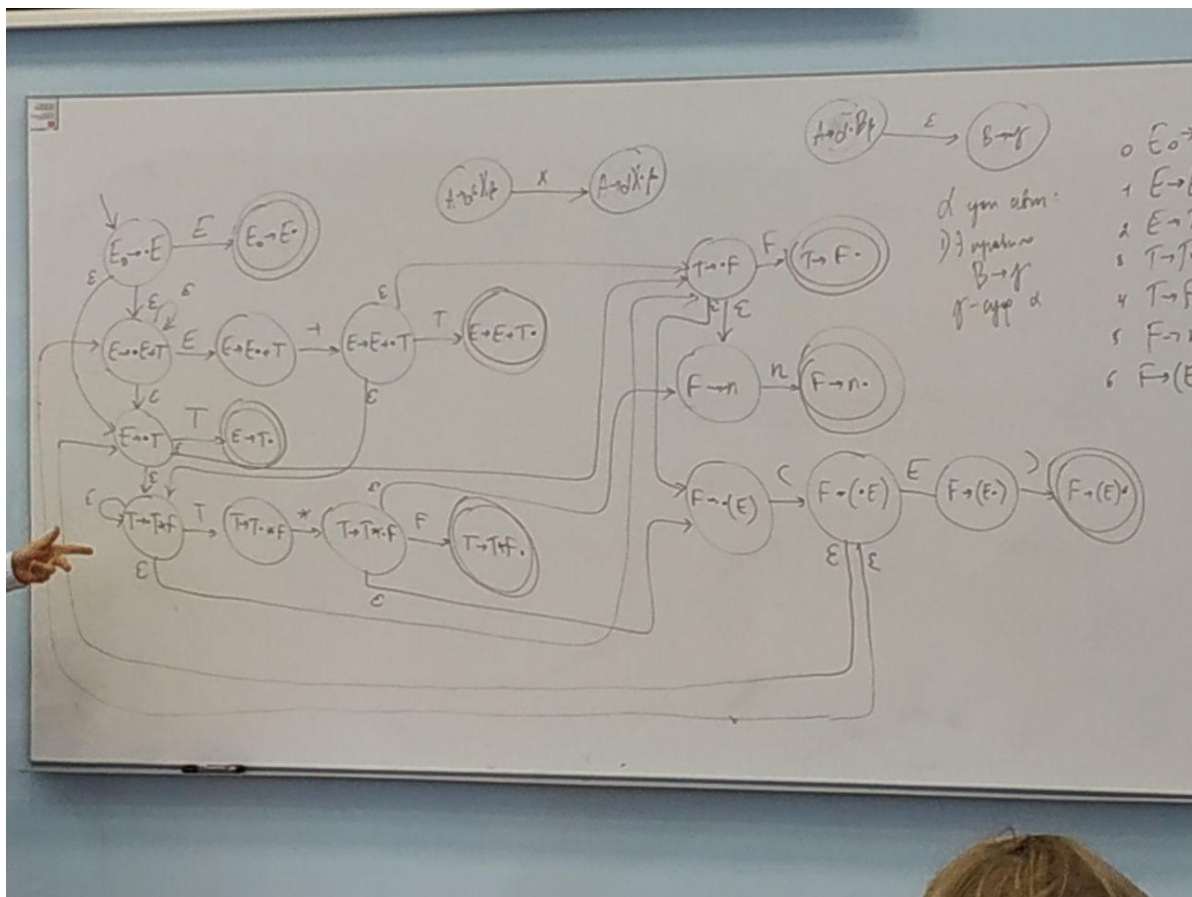 A→α·Bβ ε B→γ
A→α·Xβ X A→αX·β
0 E₀→
1 E→E
2 E→T
3 T→T*
4 T→F
5 F→n
6 F→(E
B→γ
E₀→·E E E₀→E·
ε ε ε
E→·E+T E E→E·+T + E→E+·T T E→E+T·
ε ε ε
E→·T T E→T·
ε
ε T→·T*F T T→T·*F * T→T*·F F T→T*F·
ε ε ε
T→·F F T→F·
ε ε
F→·n n F→n·
F→·(E) ( F→(·E) E F→(E·) ) F→(E)·
ε ε